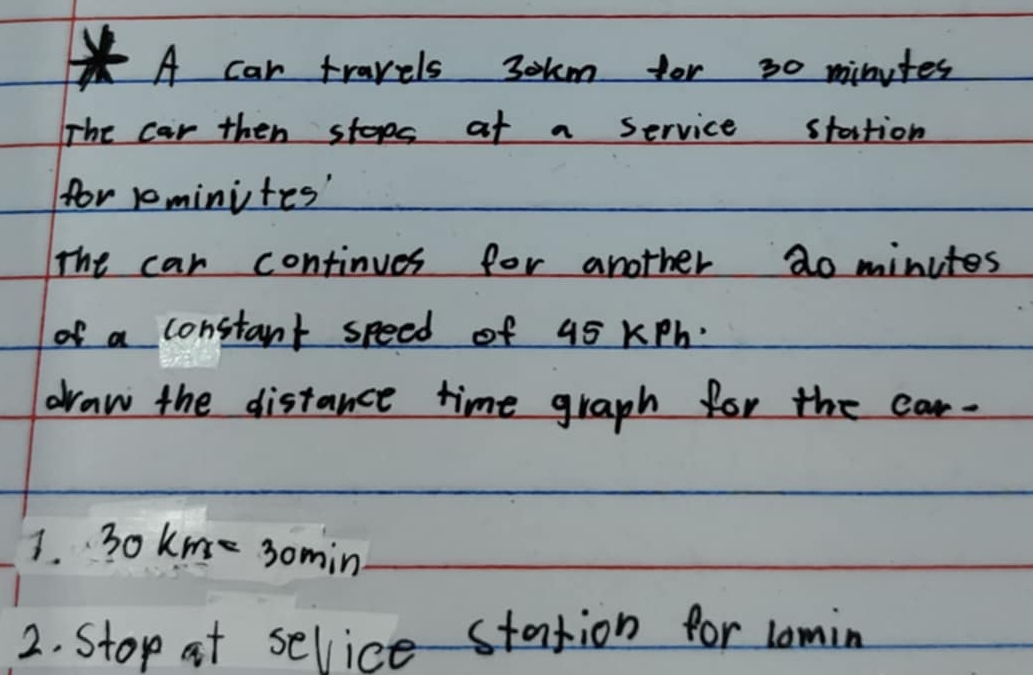 * A car travels 30km for 30 minutes
The car then stops at a service station
for 10minites'
The car continues for another 20 minutes
of a constant speed of 45 KPh.
draw the distance time graph for the car-
1. 30 km= 30min
2. Stop at selvice station for 10min